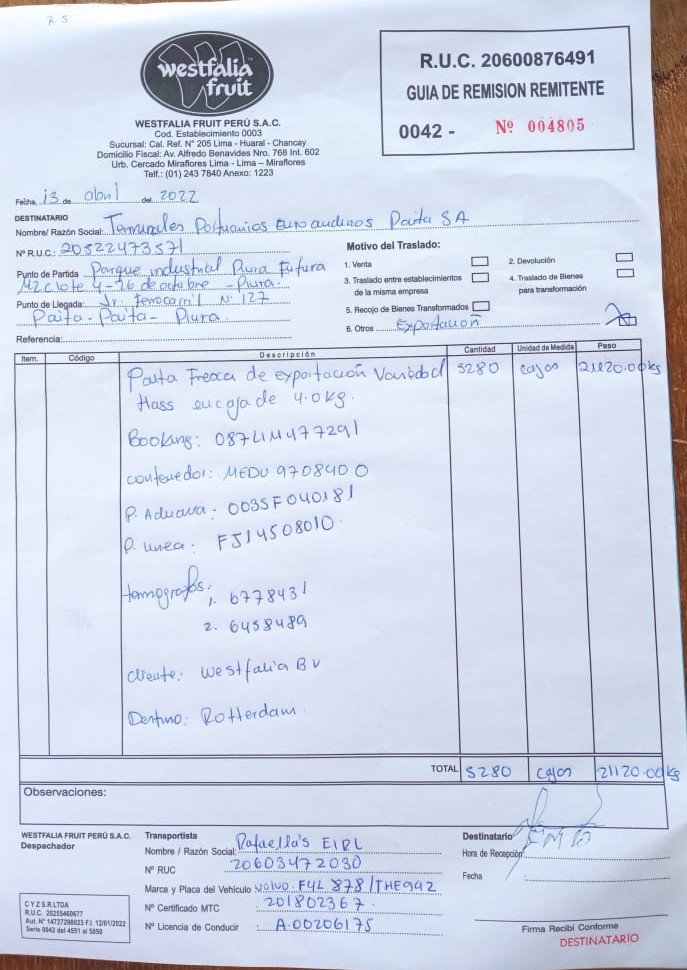 westfalia
fruit
WESTFALIA FRUIT PERÚ S.A.C.
Cod. Establecimiento 0003
Sucursal: Cal. Ref. N° 205 Lima - Huaral - Chancay
Domicilio Fiscal: Av. Alfredo Benavides Nro. 768 Int. 602
Urb. Cercado Miraflores Lima - Lima – Miraflores
Telf.: (01) 243 7840 Anexo: 1223
R.U.C. 20600876491
GUIA DE REMISION REMITENTE
0042 - Nº 004805
Fecha, 13 de abril del 2022
DESTINATARIO
Nombre/ Razón Social: Terminales Portuarios Euroandinos Paita SA
N° R.U.C.: 20522473571
Punto de Partida Parque industrial Piura Futura
Mz C lote 4-26 de octubre - Piura.
Punto de Llegada: Jr. Ferrocarril N° 127
Paita - Paita - Piura.
Referencia:
Motivo del Traslado:
1. Venta
2. Devolución
3. Traslado entre establecimientos
de la misma empresa
4. Traslado de Bienes
para transformación
5. Recojo de Bienes Transformados
6. Otros Exportación
Item. Código Descripción Cantidad Unidad de Medida Peso
Palta Fresca de exportación Variedad 5280 cajas 21120.00kg
Hass en caja de 4.0kg.
Booking: 087LIM477291
contenedor: MEDU 9708400
P. Aduana: 0035F040181
P. linea: FJ14508010
termografos:
1. 6778431
2. 6458489
cliente: Westfalia BV
Destino: Rotterdam
TOTAL 5280 cajas 21120.00kg
Observaciones:
WESTFALIA FRUIT PERÚ S.A.C.
Despachador
Transportista
Nombre / Razón Social: Rafaella's EIRL
N° RUC 20603472030
Marca y Placa del Vehículo Volvo. F4L 878 / THE942
N° Certificado MTC 201802367
N° Licencia de Conducir : A.00206175
Destinatario
Hora de Recepción
Fecha
Firma Recibí Conforme
DESTINATARIO
C Y Z S.R.LTDA
R.U.C. 20255460677
Aut. N° 14727298023 F.I. 12/01/2022
Serie 0042 del 4551 al 5050